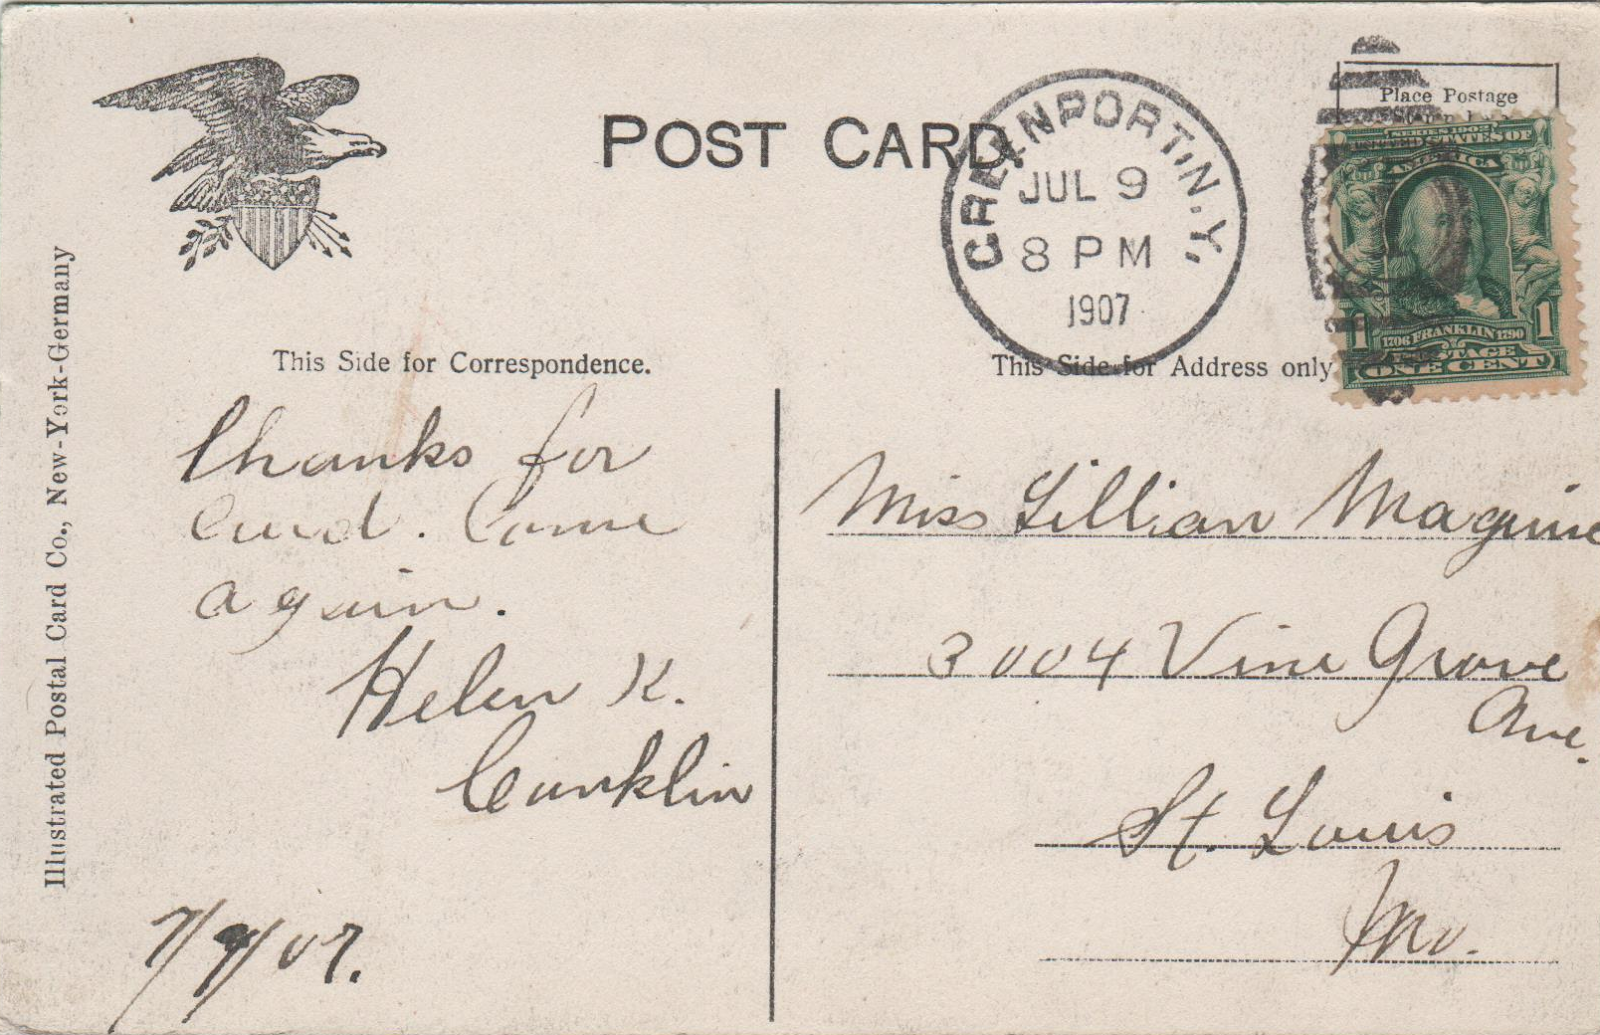 POST CARD
Place Postage
GREENPORT, N.Y.
JUL 9
8 PM
1907
SERIES 1902
UNITED STATES OF
AMERICA
1 1
1706 FRANKLIN 1790
POSTAGE
ONE CENT
Illustrated Postal Card Co., New-York-Germany
This Side for Correspondence.
Thanks for
Card. Come
again.
Helen K.
Conklin
7/9/07.
This Side for Address only
Miss Lillian Maguire
3004 Vine Grove
Ave.
St. Louis
Mo.